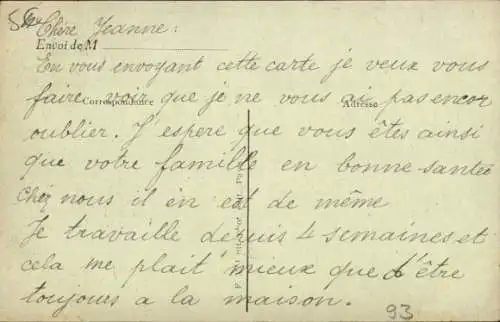 Chère Jeanne:
Envoi de M
En vous envoyant cette carte je veux vous
faire voir que je ne vous ai pas encor
Correspondance Adresse
oublier. J'espere que vous êtes ainsi
que votre famille en bonne santée
Chez nous il en est de même
Je travaille depuis 4 semaines et
cela me plait mieux que d'être
toujours a la maison.
93